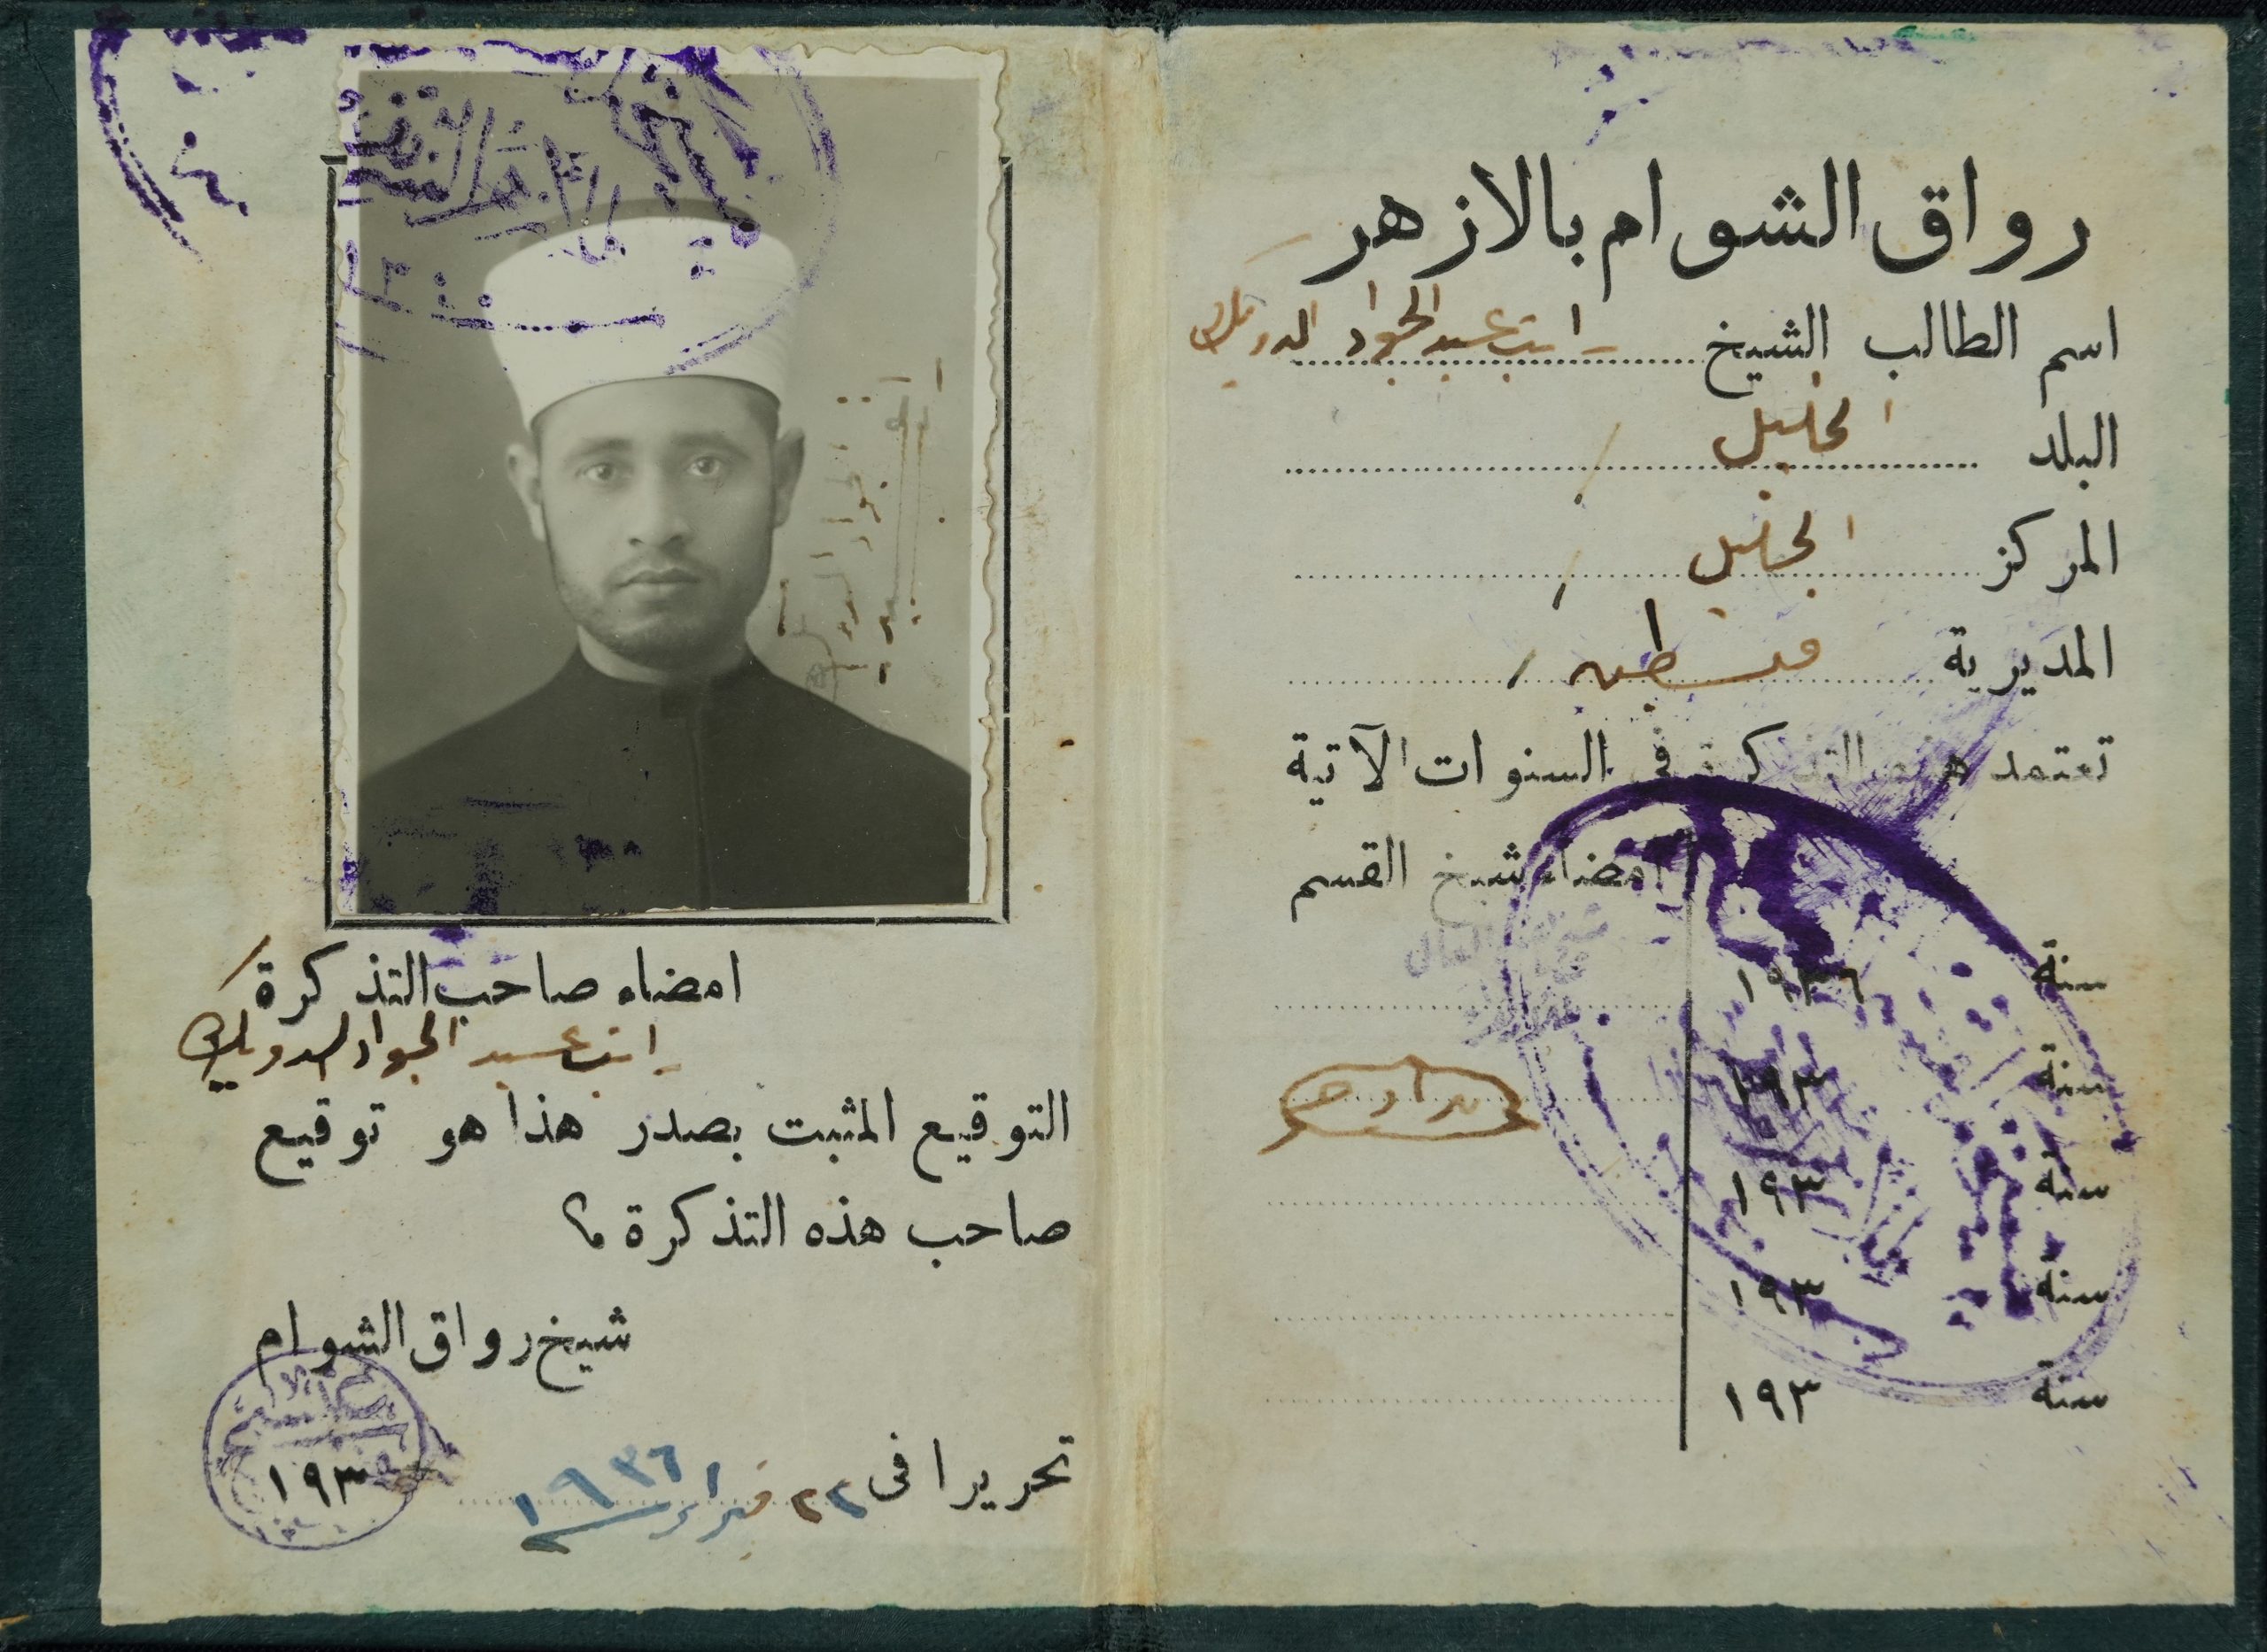 رواق الشوام بالازهر
اسم الطالب الشيخ راتب عبد الجواد الدويك
البلد الخليل
المركز الخليل
المديرية فلسطين
تعتمد هذه التذكرة في السنوات الآتية
امضاء شيخ القسم
سنة ١٩٣٦
سنة ١٩٣
سنة ١٩٣
سنة ١٩٣
سنة ١٩٣
امضاء صاحب التذكرة
راتب عبد الجواد الدويك
التوقيع المثبت بصدر هذا هو توقيع
صاحب هذه التذكرة
شيخ رواق الشوام
١٩٣
تحريرا فى ٢٢ فبراير ١٩٣٦